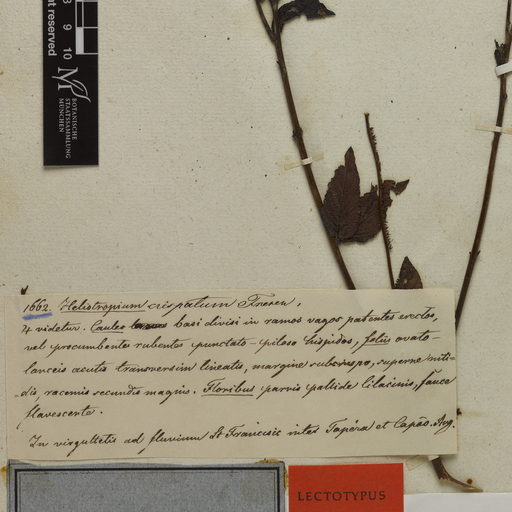 t reserved
8 9 10
BOTANISCHE
STAATSSAMMLUNG
MÜNCHEN
1662. Heliotropium crispatum Fresen.
♃ videtur. Caules basi divisi in ramos vagos patentes erectos,
vel procumbentes rubentes punctato-piloso hispidos, foliis ovato-
lanceis acutis transversim lineatis, margine subcrispo, superne niti-
dis, racemis secundis magnis. Floribus parvis pallide lilacinis, fauce
flavescente.
In virgultetis ad fluvium St Francisci inter Tapéra et Capão. Aug.
LECTOTYPUS